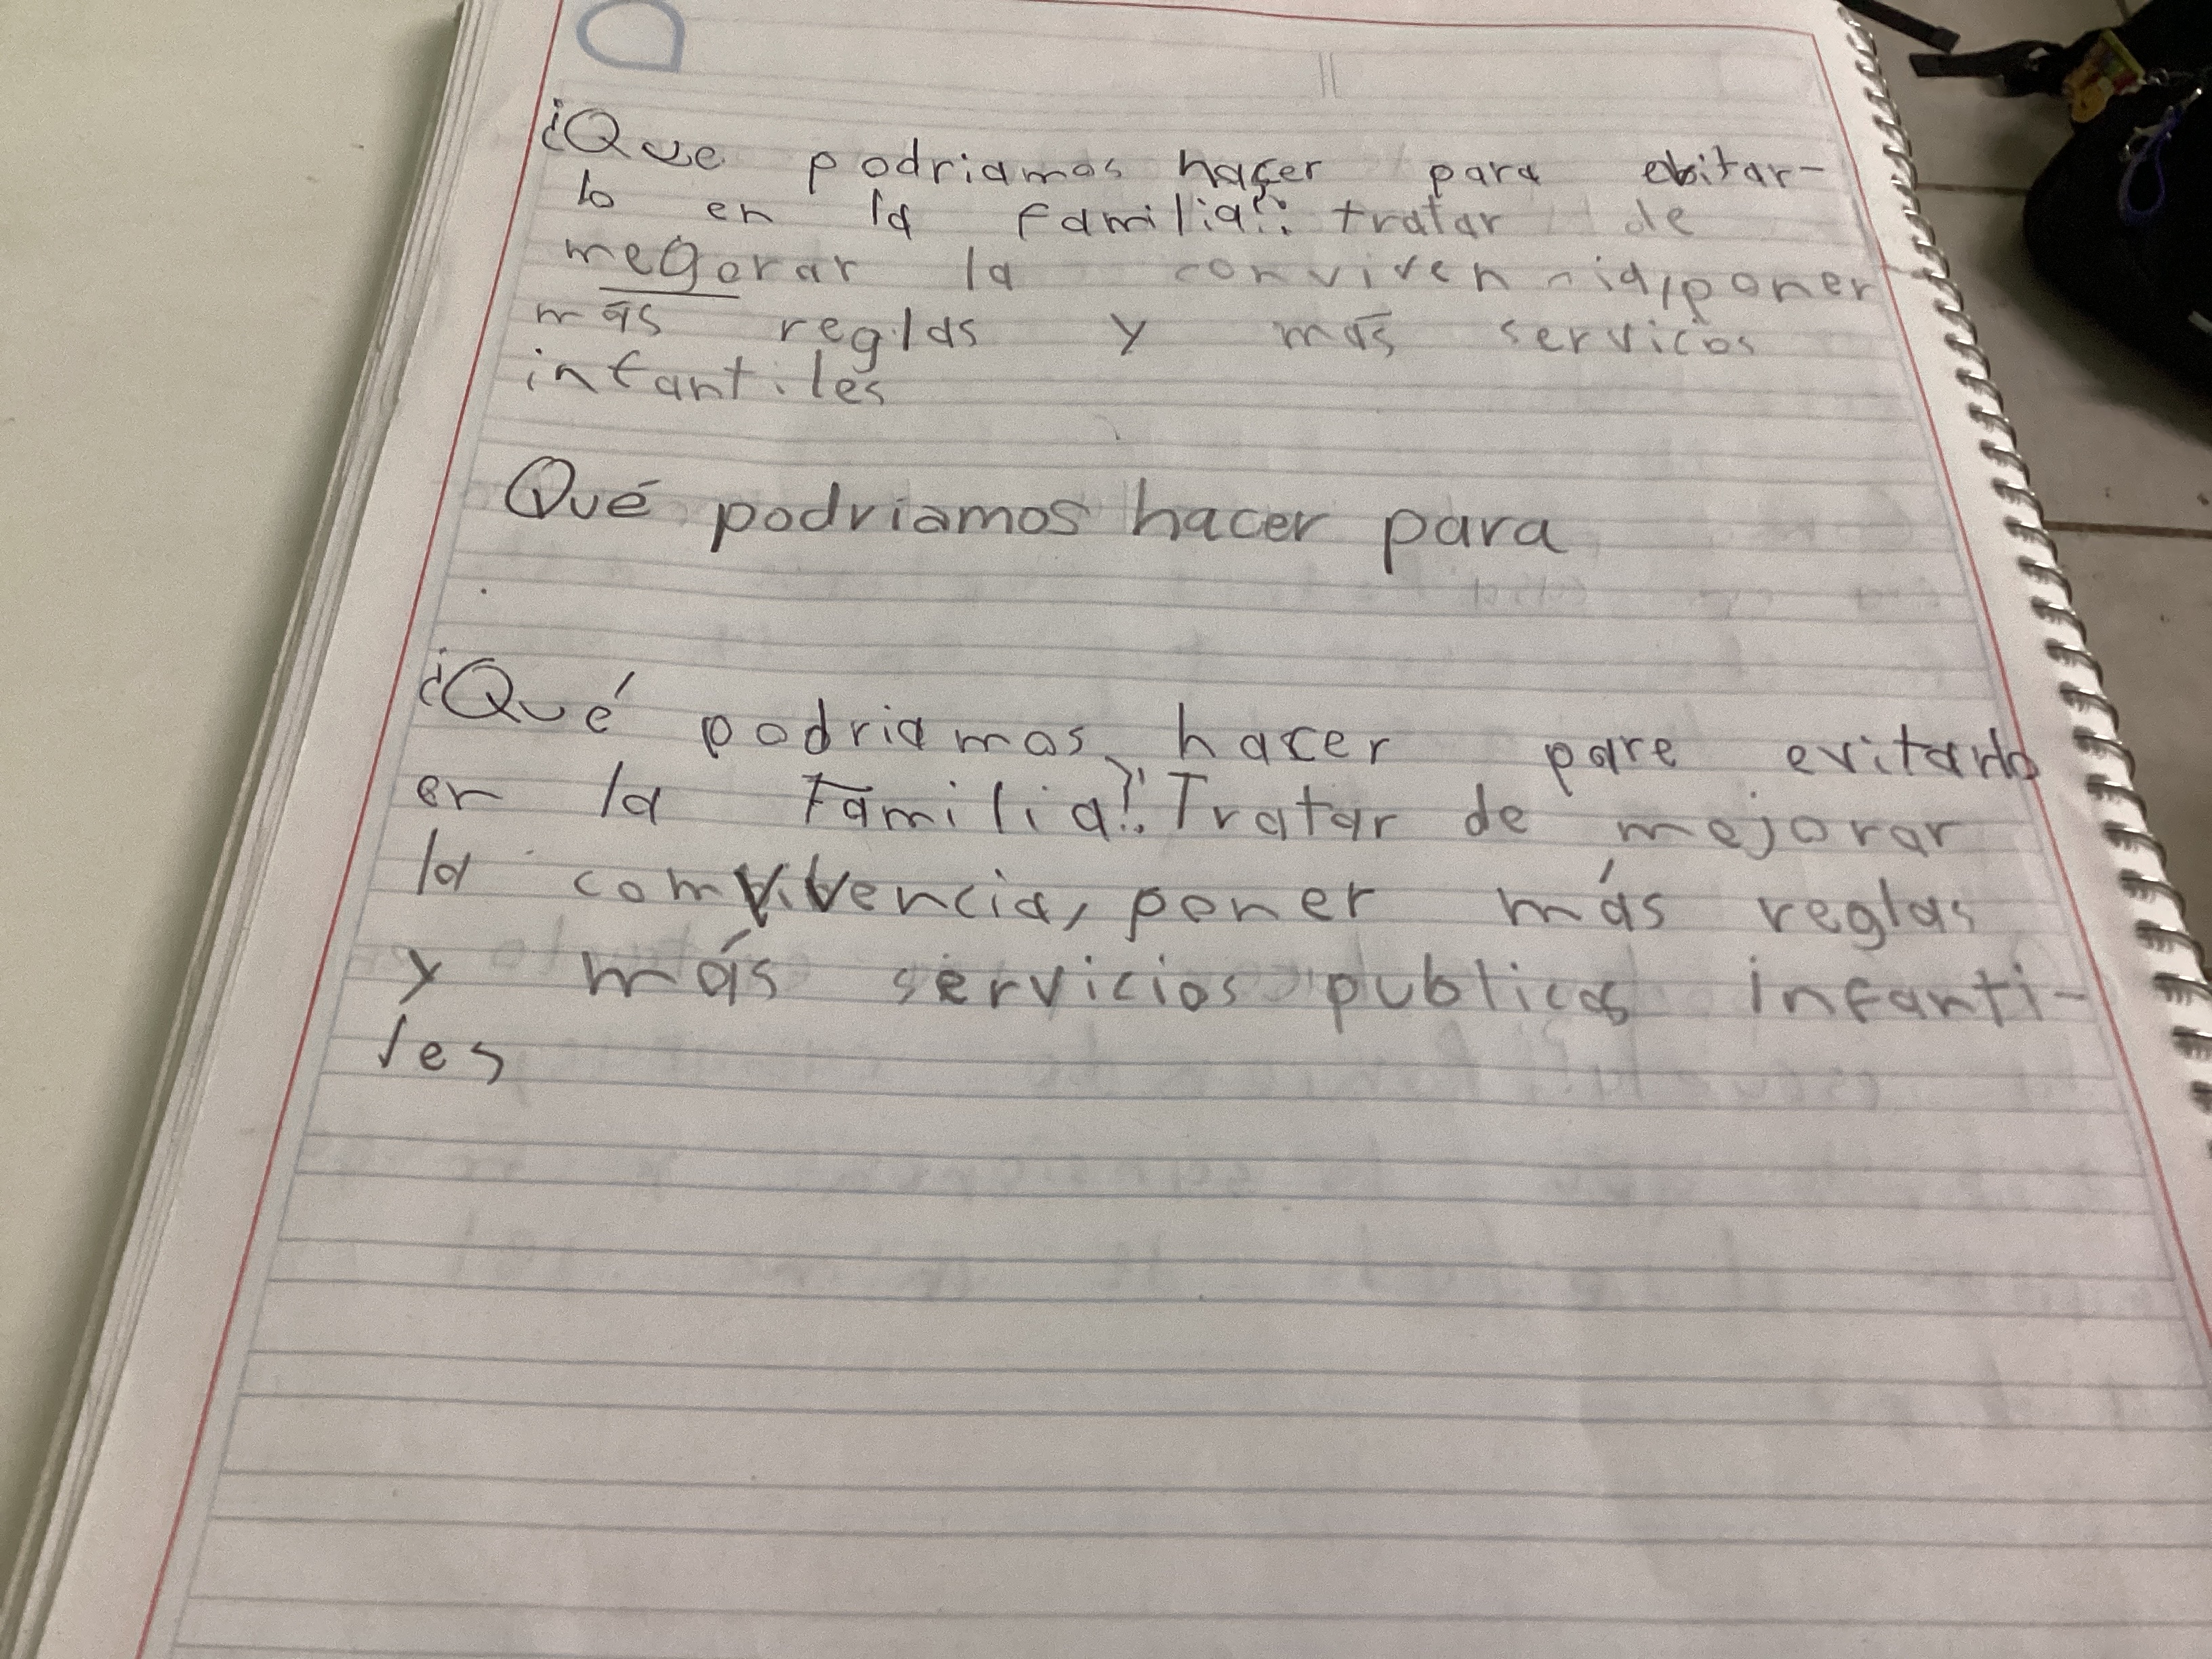 ¿Que podriamos hacer para ebitar-
lo en la familia?: tratar de
megorar la convivencia, poner
más reglas y más servicos
infantiles
Qué podriamos hacer para
¿Qué podriamos hacer pare evitarlo
en la Familia?: Tratar de mejorar
la comvivencia, poner más reglas
y más servicios publicos infanti-
les